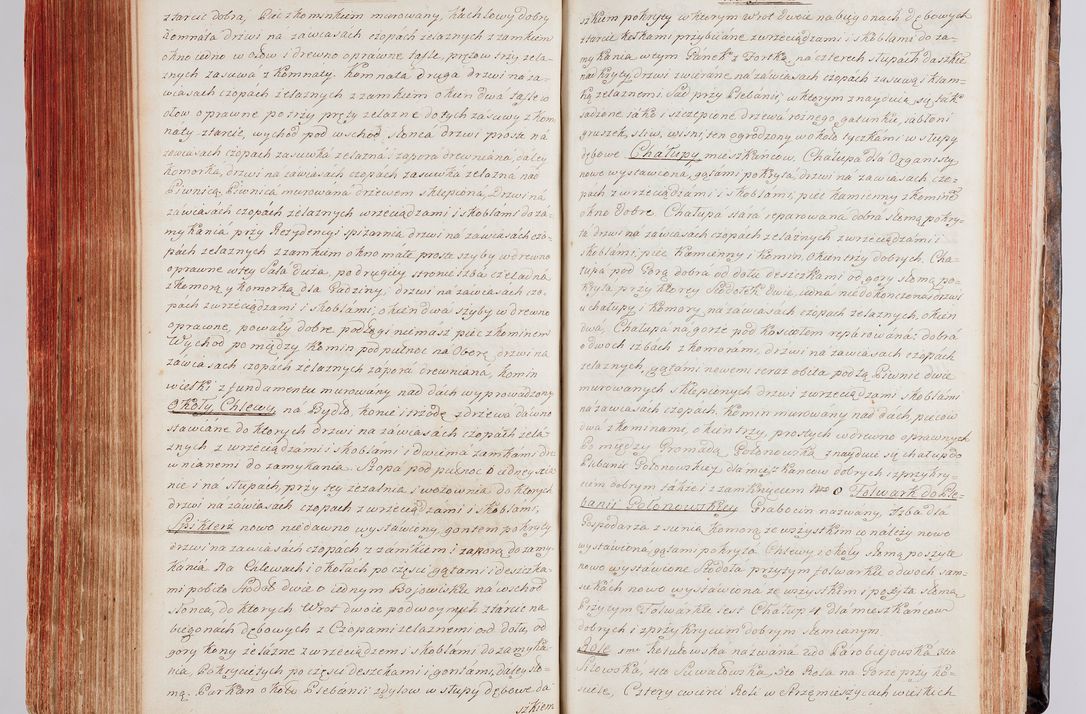 ztarcic dobrą, Piec z kominkiem murowany, kachlowy dobry
Kemnata drzwi na zawiasach czopach żelaznych z zamkiem
okno iedno w ołow i drewno oprawne taflę, przsow trzy żela-
znych zasuwa z Komnaty. Komnata druga drzwi na za-
wiasach czopach żelaznych z zamkiem okien dwa tafle w
ołow oprawne po trzy pręty żelazne do tych zasuwy z kom
naty ztarcic, wychod pod wschod słonca drzwi proste na
zawiasach czopach zasuwka żelazna i zapora drewniana, daley
komorka, drzwi na zawiasach czopach zasuwka żelazna nad
Piwnicą. Piwnica murowana drzewem sklepiona, Drzwi na
zawiasach czopach żelaznych wrzeciądzami i skoblami do za-
mykania przy Rezydencyi spizarnia drzwi na zawiasach czo-
pach żelaznych z zamkiem okno małe, proste szyby w drewno
oprawne w tey Sala duza, po drugiey stronie Izba czeladna
z komorą y komorką dla Gadziny, drzwi na zawiasach czo-
pach z wrzeciądzami i skoblami, okien dwa szyby w drewno
oprawne, powały dobre podłogi niemasz piec z kominem
Wychod pomiędzy Komin pod pułnoc na Oborę drzwi na
zawiasach czopach żelaznych zapora drewniana, komin
wielki z fundamentu murowany nad dach wyprowadzony
Okoły Chlewy na Bydło, konie i trzodę z drzewa dawno
stawiane do ktorych drzwi na zawiasach czopach żela-
znych z wrzeciądzami i skoblami i dwiema zamkami dre
wnianemi do zamykania. Szopa pod pułnoc o iedney szia
nce i na słupach, przy tey rezalnia i wozownia do ktorych
drzwi na zawiasach czopach z wrzeciądzami i skoblami,
Spiklerz nowo niedawno wystawiony, gontem pokryty
drzwi na zawiasach czopach z zamkiem i zaporą do zamy
kania Na Chlewach i okołach po części gątami i deszczka-
mi pobito Stodoł dwie o iednym Boiowisku na wschod
słonca, do ktorych Wrot dwoie podwoynych ztarcic na
biegonach dębowych z Czopami żelaznemi od dołu, od
gory kony żelazne z wrzeciądzem i skoblami do zamyka-
nia, Pokrycie tych po części deszczkami i gontami, daley sło-
mą. Parkan około Plebanii z dylow w słupy dębowe da-
szkiem
szkiem pokryty w ktorym Wrot dwoie na biegonach dębowych
ztarcic kołkami przybiiane z wrzeciądzami i skoblami do za-
mykania w tym Ganek z Fortką na czterech słupach daszkie
nakryty, drzwi zwierane na zawiasach czopach zasuwą i klam-
ką żelaznemi. Sad przy Plebanii, w ktorym znayduią się tak
sadzone iako i szczepione drzewa roznego gatunku, iabłoni
gruszek, śliw, wisni, ten ogrodzony wokoło tyczkami w słupy
dębowe Chałupy mieszkańcow. Chałupa dla Organisty
nowo wystawiona, gątami pokryta, drzwi na zawiasach czo-
pach z wrzeciądzami i skoblami, piec kamienny z kominem
okno dobre. Chałupa stara reparowana dobra słomą pokry-
ta drzwi na zawiasach czopach żelaznych z wrzeciądzami i
skoblami, piec Kamienny i Komin, Okien trzy dobrych. Cha-
łupa pod Gorą dobra od dołu deszczkami od gory słomą po-
kryta przy ktorey Stodołek dwie, iedna niedokonczona drzwi
u chałupy i komory na zawiasach czopach żelaznych, okien
dwa. Chałupa na gorze pod kosciołem reparowana: dobra
o dwoch izbach z komorami, drzwi na zawiasach czopach
żelaznych, gątami nowemi teraz obita pod tą Piwnic dwie
murowanych sklepionych drzwi z wrzeciądzami i skoblami
na zawiasach czopach. Komin murowany nad dach, piecow
dwa z kominami, okien trzy, prostych w drewno oprawnych
Pomiędzy Gromadą Połonowską znayduie się chałup do
Plebanii Połonowskiey dla mieszkancow dobrych i z przykry-
ciem dobrym także i z zamknięciem Nro 0 Folwark do Ple-
banii Połonowskiey Grabocin nazwany, Izba dla
Gospodarza z sienią komorą ze wszystkim w należy nowo
wystawiona, gątami pokryta Chlewy i okoły słomą poszyte
nowo wystawione Stodoła przytym folwarku o dwoch sam-
siekach nowo wystawiona ze wszystkim i poszyta słomą
Przytym Folwarku iest Chałup 4 dla mieszkancow
dobrych i z przykryciem dobrym słomianym.
Role 1mo Kotulowska nazwana 2do Parobieiowska 3tio
Sitowska, 4to Suwałowska, 5to Rola na Gorze przy ko-
ściele, Cztery cwierci Roli w Strzemieszycach wielkich